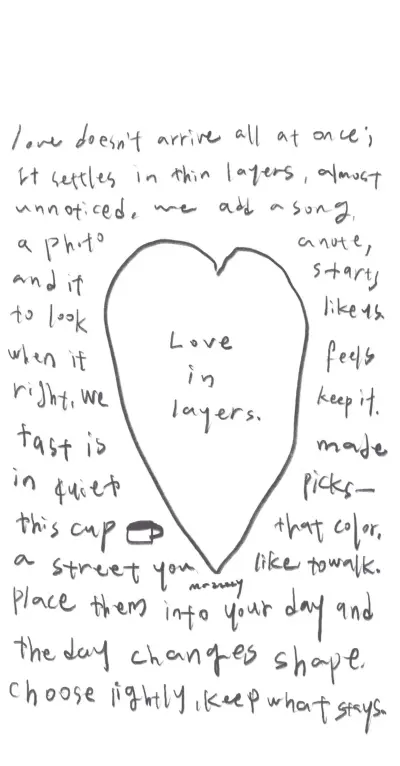 love doesn't arrive all at once;
it settles in thin layers, almost
unnoticed. we add a song,
a photo a note,
and it starts
to look like us
when it feels
right, we keep it.
tast is made
in quiet picks—
this cup that color.
a street you like to walk.
Place them into your day and
the day changes shape.
choose lightly, keep what stays.
Love
in
layers.